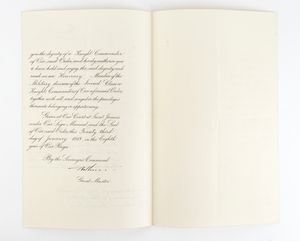 you the dignity of a Knight Commander
of Our said Order and hereby authorise you
to have, hold and enjoy the said dignity and
rank as an Honorary Member of the
Military division of the Second Class or
Knight Commander of Our aforesaid Order
together with all and singular the privileges
thereunto belonging or appertaining.
Given at Our Court at Saint James's
under Our Sign Manual and the Seal
of Our said Order, this Twenty third
day of January 1918, in the Eighth
year of Our Reign.
By the Sovereign's Command.
Grand Master